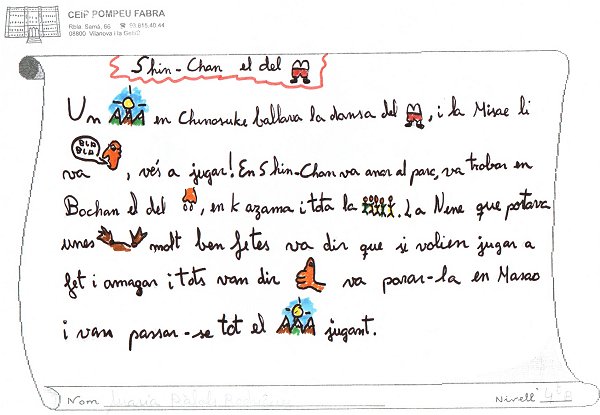 CEIP POMPEU FABRA
Rbla. Samà, 56 ☎ 93.815.40.44
08800 Vilanova i la Geltrú
Shin-Chan el del
Un en Chinosuke ballava la dansa del , i la Misae li
BLA BLA!
va , vés a jugar! En Shin-Chan va anar al parc, va trobar en
Bochan el del , en Kazama i tota la . La Nene que portava
unes molt ben fetes va dir que si volien jugar a
fet i amagar i tots van dir va parar-la en Masao
i van passar-se tot el jugant.
Nom
Nivell